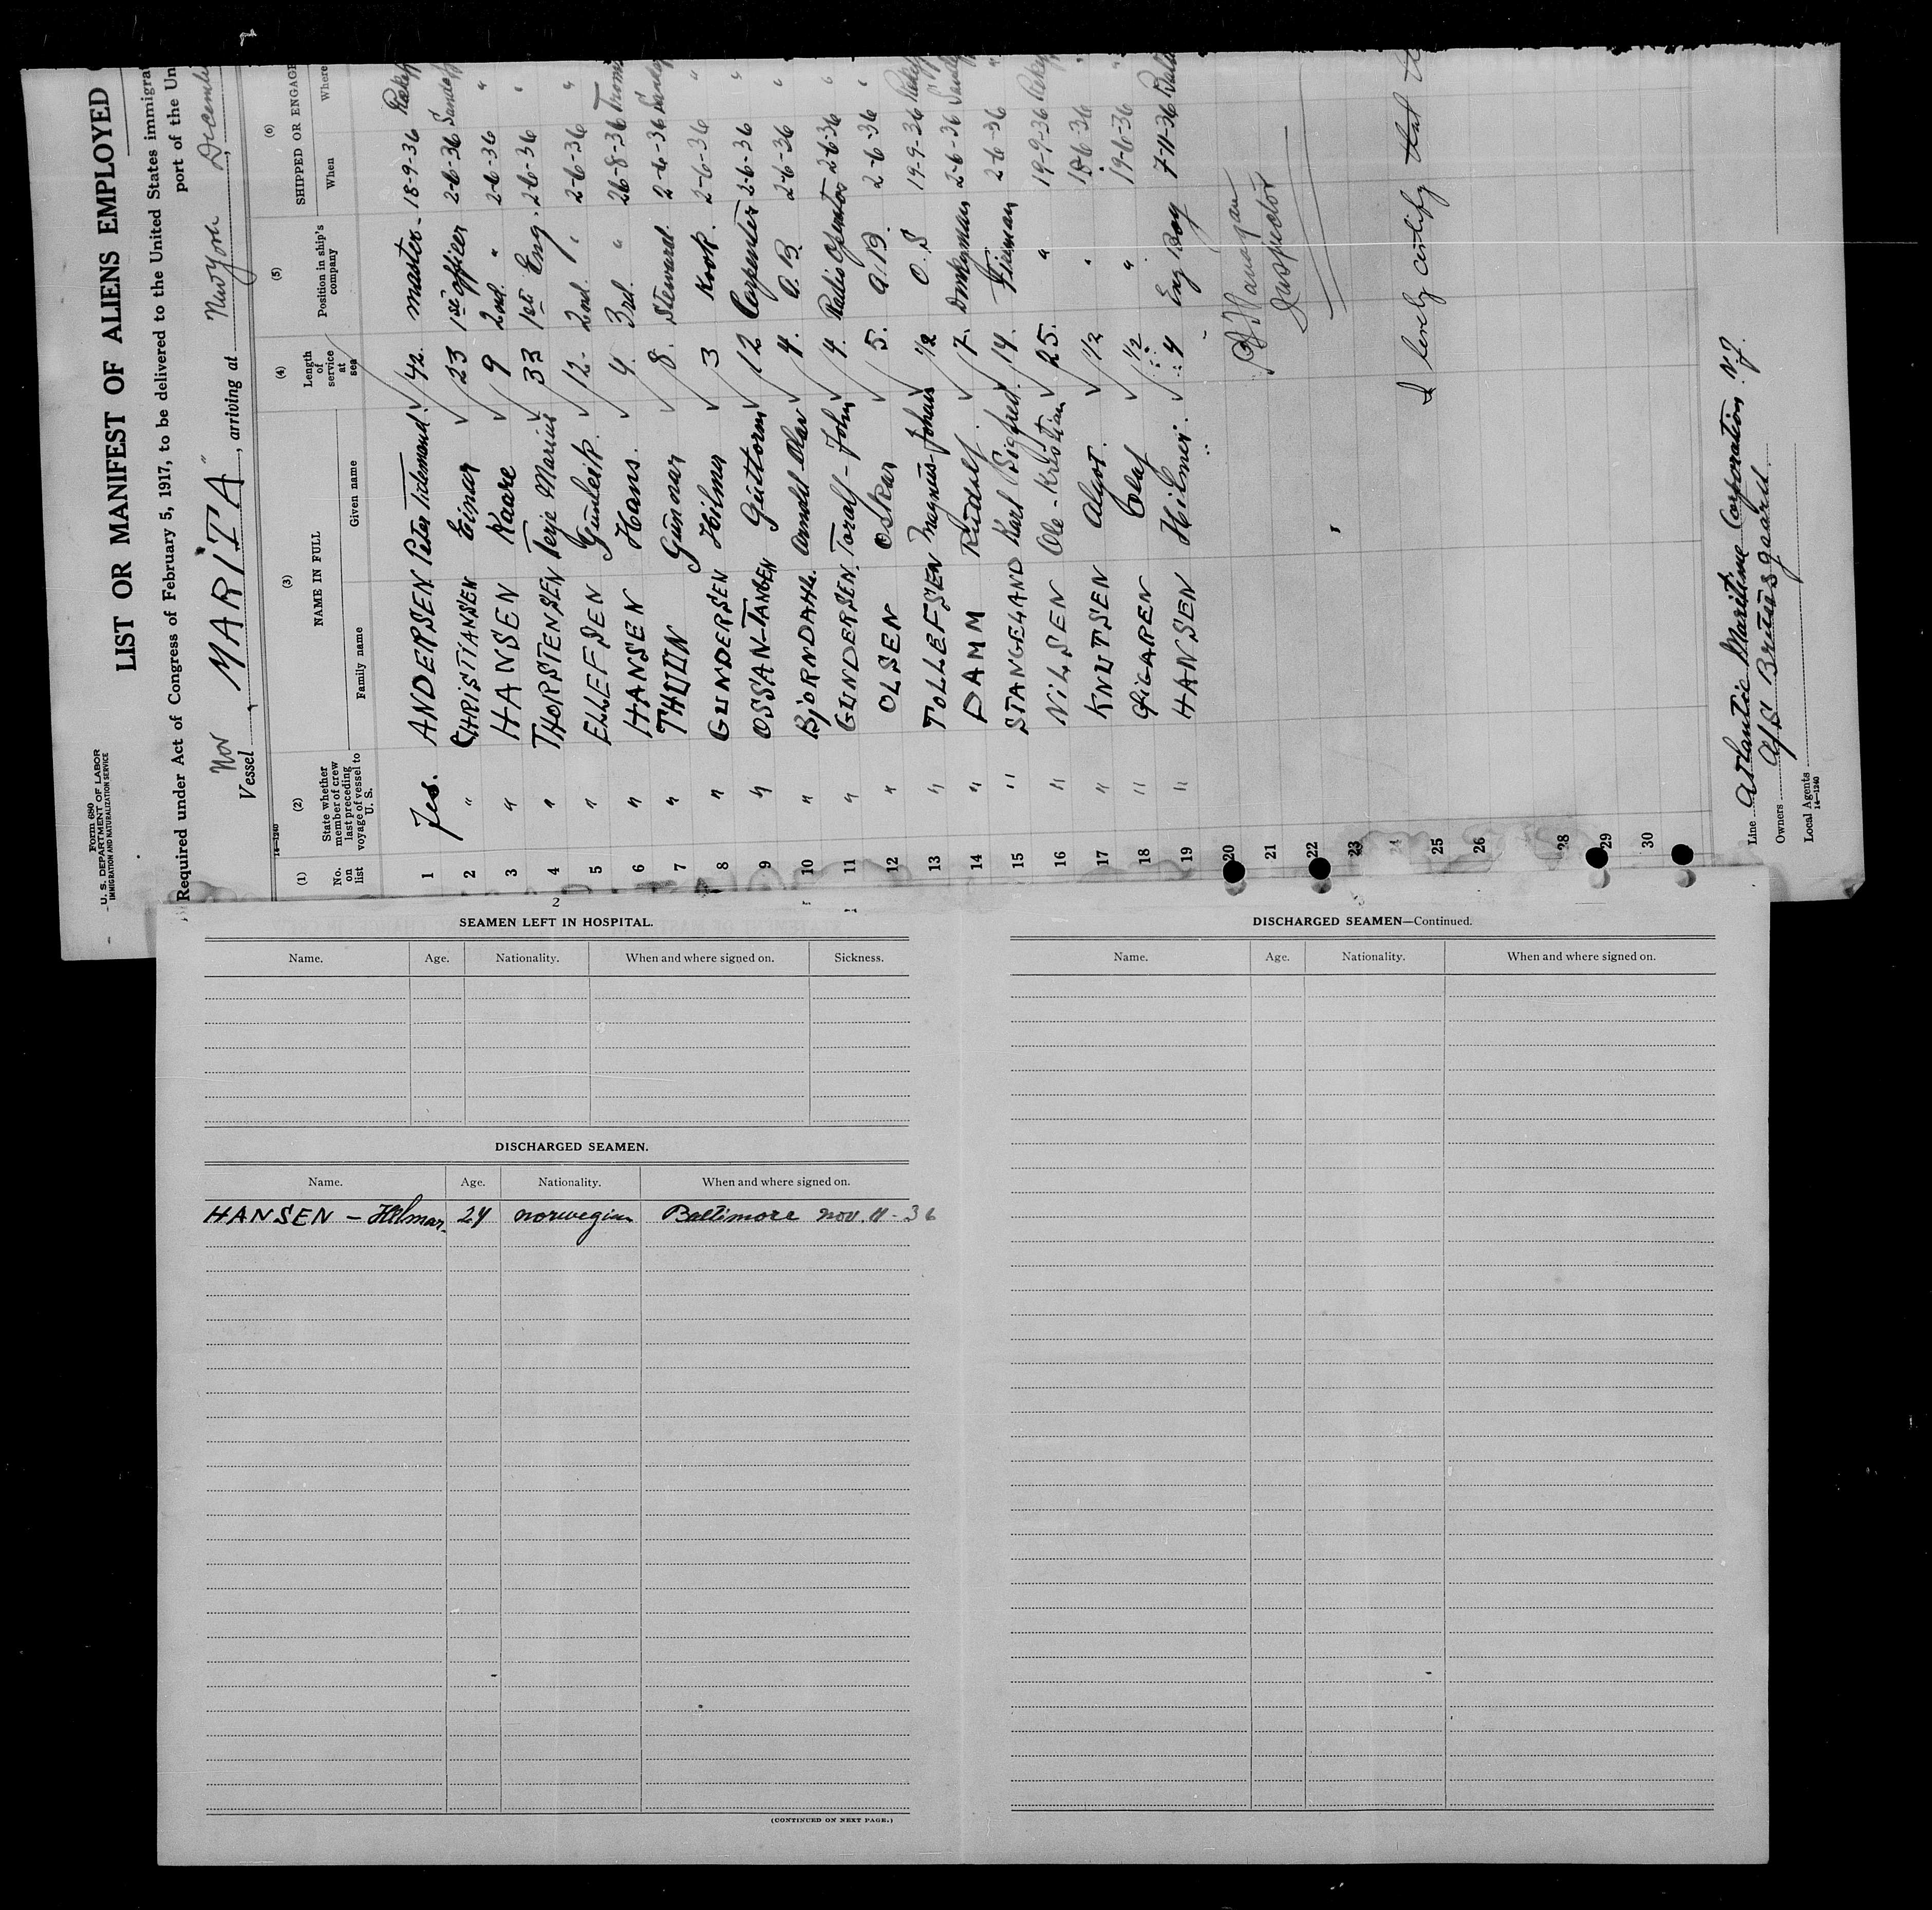 Form 680
U. S. DEPARTMENT OF LABOR
IMMIGRATION AND NATURALIZATION SERVICE
LIST OR MANIFEST OF ALIENS EMPLOYED
Required under Act of Congress of February 5, 1917, to be delivered to the United States immigra
port of the Un
Nor
Vessel "MARITA", arriving at New York December
14—1240
(1) (2) (3) (4) (5) (6)
No. on list
State whether member of crew last preceding voyage of vessel to U. S.
NAME IN FULL
Family name Given name
Length of service at sea
Position in ship's company
SHIPPED OR ENGAGE
When Where
1 Yes. ANDERSEN Peter Tidemand. 42. master. 18-9-36
2 " CHRISTIANSEN Einar 23 1st officer 2-6-36
3 " HANSEN Kaare 9 2nd. " 2-6-36 "
4 " THORSTENSEN Terje Marius 33 1st Eng. 2-6-36 "
5 " ELLEFSEN Gunleik. 12- 2nd. " 2-6-36 "
6 " HANSEN Hans. 4. 3rd. " 26-8-36
7 " THUUN Gunnar 8. Steward. 2-6-36
8 " GUNDERSEN Hilmar 3 Kook. 2-6-36 "
9 " OSSAN-TANGEN Guttorm 12 Carpenter 2-6-36 "
10 " BJORNDAHL. Arndell Olav 4. A.B. 2-6-36 "
11 " GUNDERSEN. Toralf-John 4. Radio Operator 2-6-36 "
12 " OLSEN Oskar 5. A.B. 2-6-36 "
13 " TOLLEFSEN Magnus-Johan 1/2 O.S 19-9-36
14 " DAMM Rudolf. 7. Donkeyman 2-6-36
15 " STANGELAND Karl Sigfred. 14. Fireman 2-6-36 "
16 " NILSEN Ole-Kristian 25. " 19-9-36
17 " KNUTSEN Algot. 1/2 " 18-6-36 "
18 " Olaf 1/2 " 19-6-36 "
19 " HANSEN Hilmer. 4 Eng Boy 7-11-36
20
21
22
23
24
25
26
28
29
30
Inspector
I herely certify that
Line Atlantic Maritime Corporation N.Y.
Owners A/S Brusgaard
Local Agents
14—1240
2
SEAMEN LEFT IN HOSPITAL.
Name. Age. Nationality. When and where signed on. Sickness.
DISCHARGED SEAMEN.
Name. Age. Nationality. When and where signed on.
HANSEN - Hilmar. 24 norwegian Baltimore nov. 11-36
(CONTINUED ON NEXT PAGE.)
DISCHARGED SEAMEN—Continued.
Name. Age. Nationality. When and where signed on.